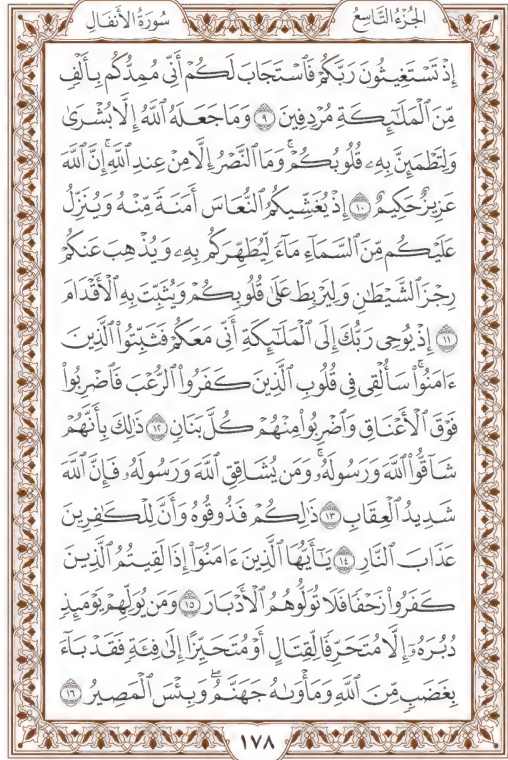 الجُزْءُ التَّاسِعُ
سُورَةُ الأَنفَالِ
إِذْ تَسْتَغِيثُونَ رَبَّكُمْ فَٱسْتَجَابَ لَكُمْ أَنِّي مُمِدُّكُم بِأَلْفٍ
مِّنَ ٱلْمَلَـٰٓئِكَةِ مُرْدِفِينَ ٩ وَمَا جَعَلَهُ ٱللَّهُ إِلَّا بُشْرَىٰ
وَلِتَطْمَئِنَّ بِهِۦ قُلُوبُكُمْ ۚ وَمَا ٱلنَّصْرُ إِلَّا مِنْ عِندِ ٱللَّهِ ۚ إِنَّ ٱللَّهَ
عَزِيزٌ حَكِيمٌ ١٠ إِذْ يُغَشِّيكُمُ ٱلنُّعَاسَ أَمَنَةً مِّنْهُ وَيُنَزِّلُ
عَلَيْكُم مِّنَ ٱلسَّمَآءِ مَآءً لِّيُطَهِّرَكُم بِهِۦ وَيُذْهِبَ عَنكُمْ
رِجْزَ ٱلشَّيْطَـٰنِ وَلِيَرْبِطَ عَلَىٰ قُلُوبِكُمْ وَيُثَبِّتَ بِهِ ٱلْأَقْدَامَ
١١ إِذْ يُوحِي رَبُّكَ إِلَى ٱلْمَلَـٰٓئِكَةِ أَنِّي مَعَكُمْ فَثَبِّتُوا۟ ٱلَّذِينَ
ءَامَنُوا۟ ۚ سَأُلْقِي فِي قُلُوبِ ٱلَّذِينَ كَفَرُوا۟ ٱلرُّعْبَ فَٱضْرِبُوا۟
فَوْقَ ٱلْأَعْنَاقِ وَٱضْرِبُوا۟ مِنْهُمْ كُلَّ بَنَانٍ ١٢ ذَٰلِكَ بِأَنَّهُمْ
شَآقُّوا۟ ٱللَّهَ وَرَسُولَهُۥ ۚ وَمَن يُشَاقِقِ ٱللَّهَ وَرَسُولَهُۥ فَإِنَّ ٱللَّهَ
شَدِيدُ ٱلْعِقَابِ ١٣ ذَٰلِكُمْ فَذُوقُوهُ وَأَنَّ لِلْكَـٰفِرِينَ
عَذَابَ ٱلنَّارِ ١٤ يَـٰٓأَيُّهَا ٱلَّذِينَ ءَامَنُوٓا۟ إِذَا لَقِيتُمُ ٱلَّذِينَ
كَفَرُوا۟ زَحْفًا فَلَا تُوَلُّوهُمُ ٱلْأَدْبَارَ ١٥ وَمَن يُوَلِّهِمْ يَوْمَئِذٍ
دُبُرَهُۥٓ إِلَّا مُتَحَرِّفًا لِّقِتَالٍ أَوْ مُتَحَيِّزًا إِلَىٰ فِئَةٍ فَقَدْ بَآءَ
بِغَضَبٍ مِّنَ ٱللَّهِ وَمَأْوَىٰهُ جَهَنَّمُ ۖ وَبِئْسَ ٱلْمَصِيرُ ١٦
١٧٨